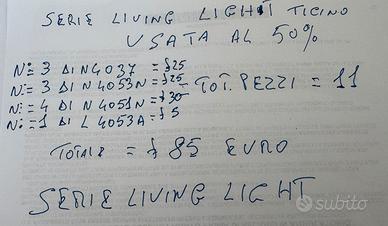 SERIE LIVING LIGHT TICINO
USATA AL 50%
N= 3 DI N4037 = £25
N= 3 DI N 4053N = £25 - TOT. PEZZI = 11
N= 4 DI N 4051N = £30
N= 1 DI L 4053A = £5
TOTALE = £ 85 EURO
SERIE LIVING LIGHT
subito